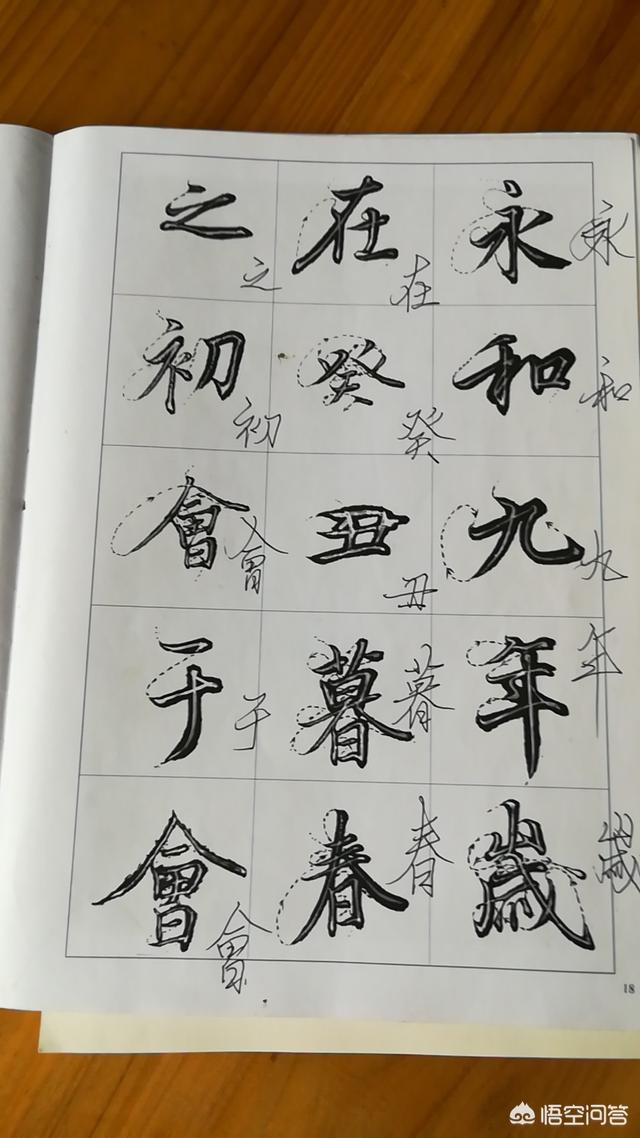 永和九年歲
永和九年歲
在癸丑暮春
在癸丑暮春
之初會于會
之初會于會
18
悟空问答